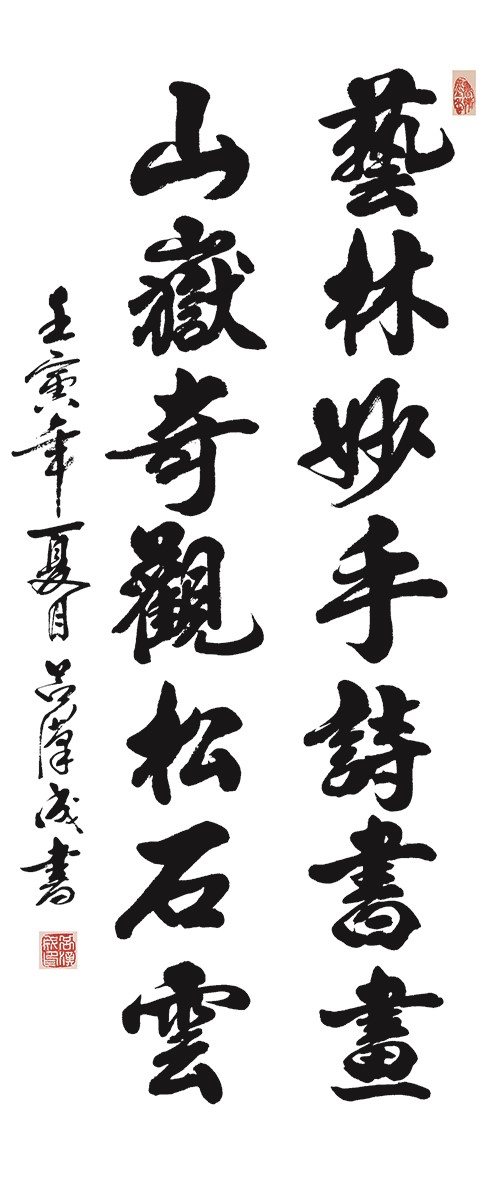 藝林妙手詩書畫
山嶽奇觀松石雲
壬寅年夏月呂漢成書